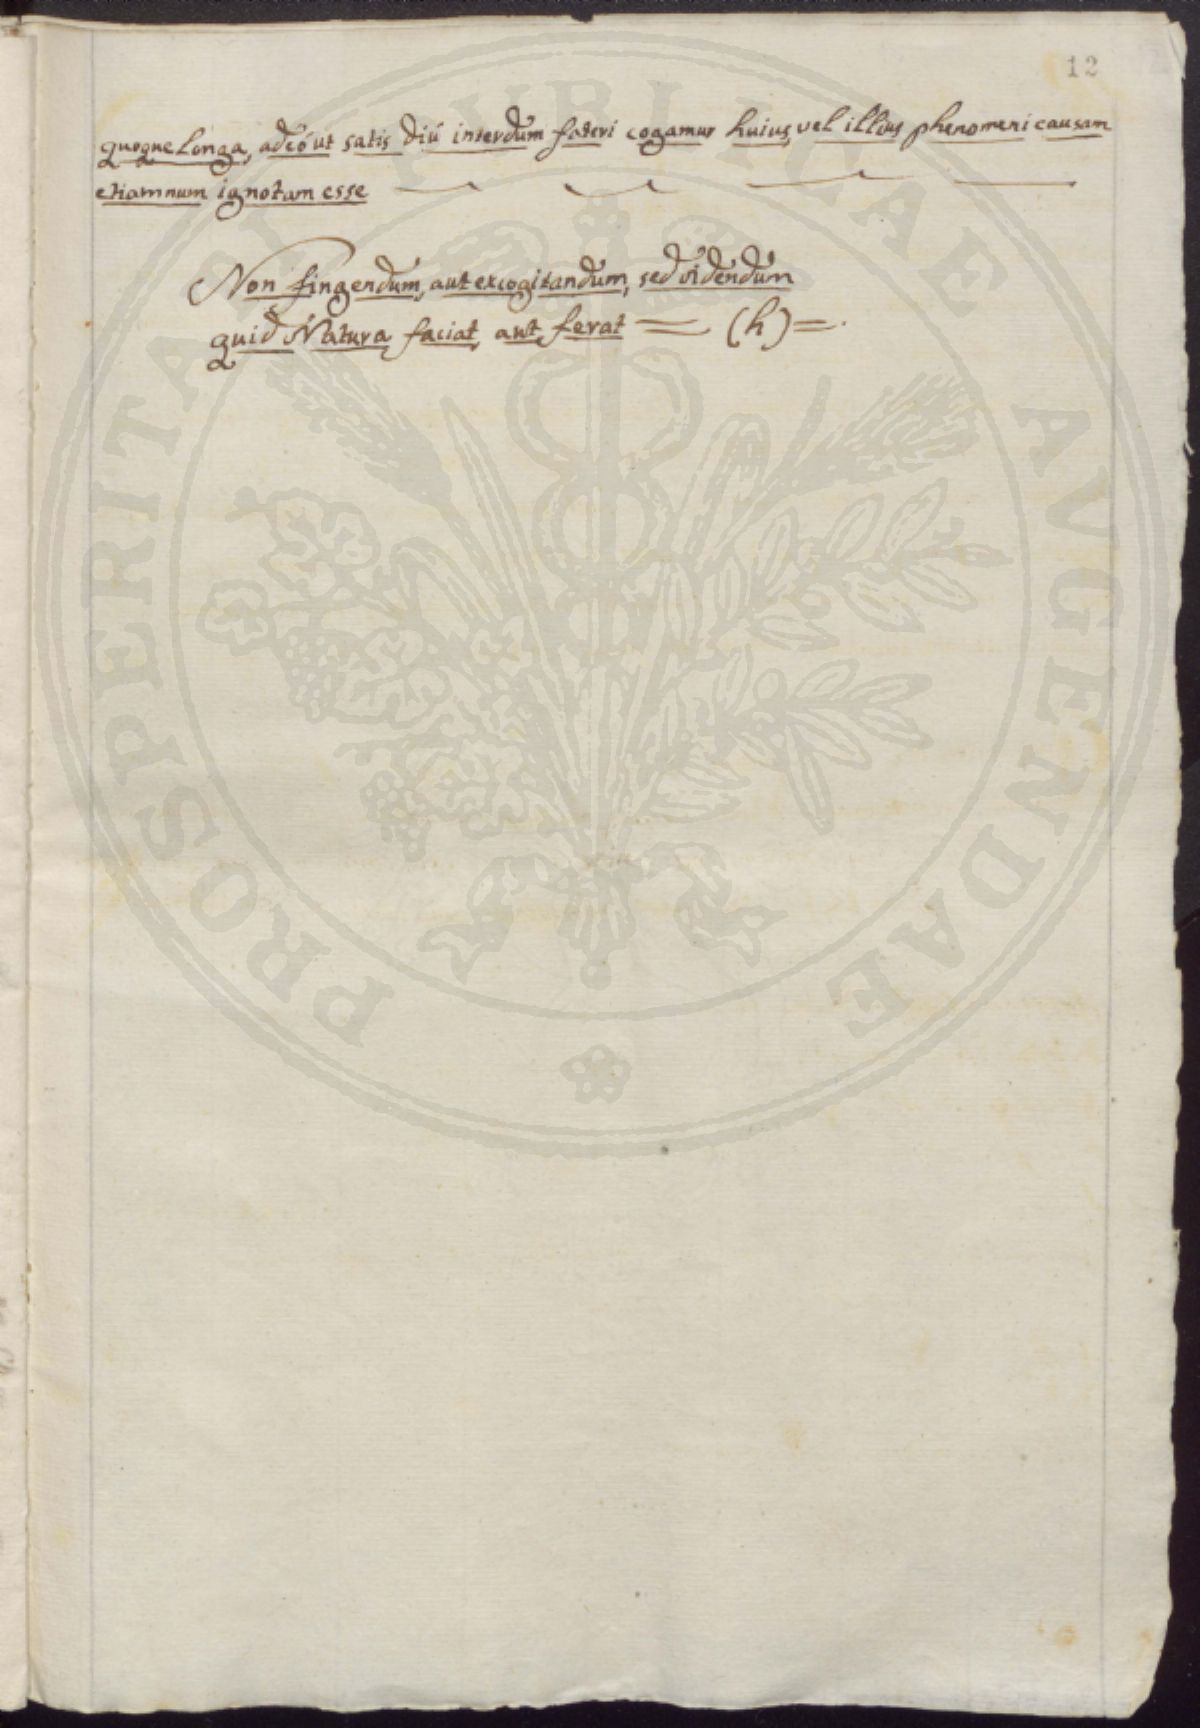 12
quoque longa, adeò ut satis diù interdum fateri cogamur huius, vel illius phenomeni causam
etiamnum ignotam esse
Non fingendum, aut excogitandum, sed videndum
quid Natura faciat, aut ferat = (h) =.
PROSPERITATI PUBLICAE AVGENDAE